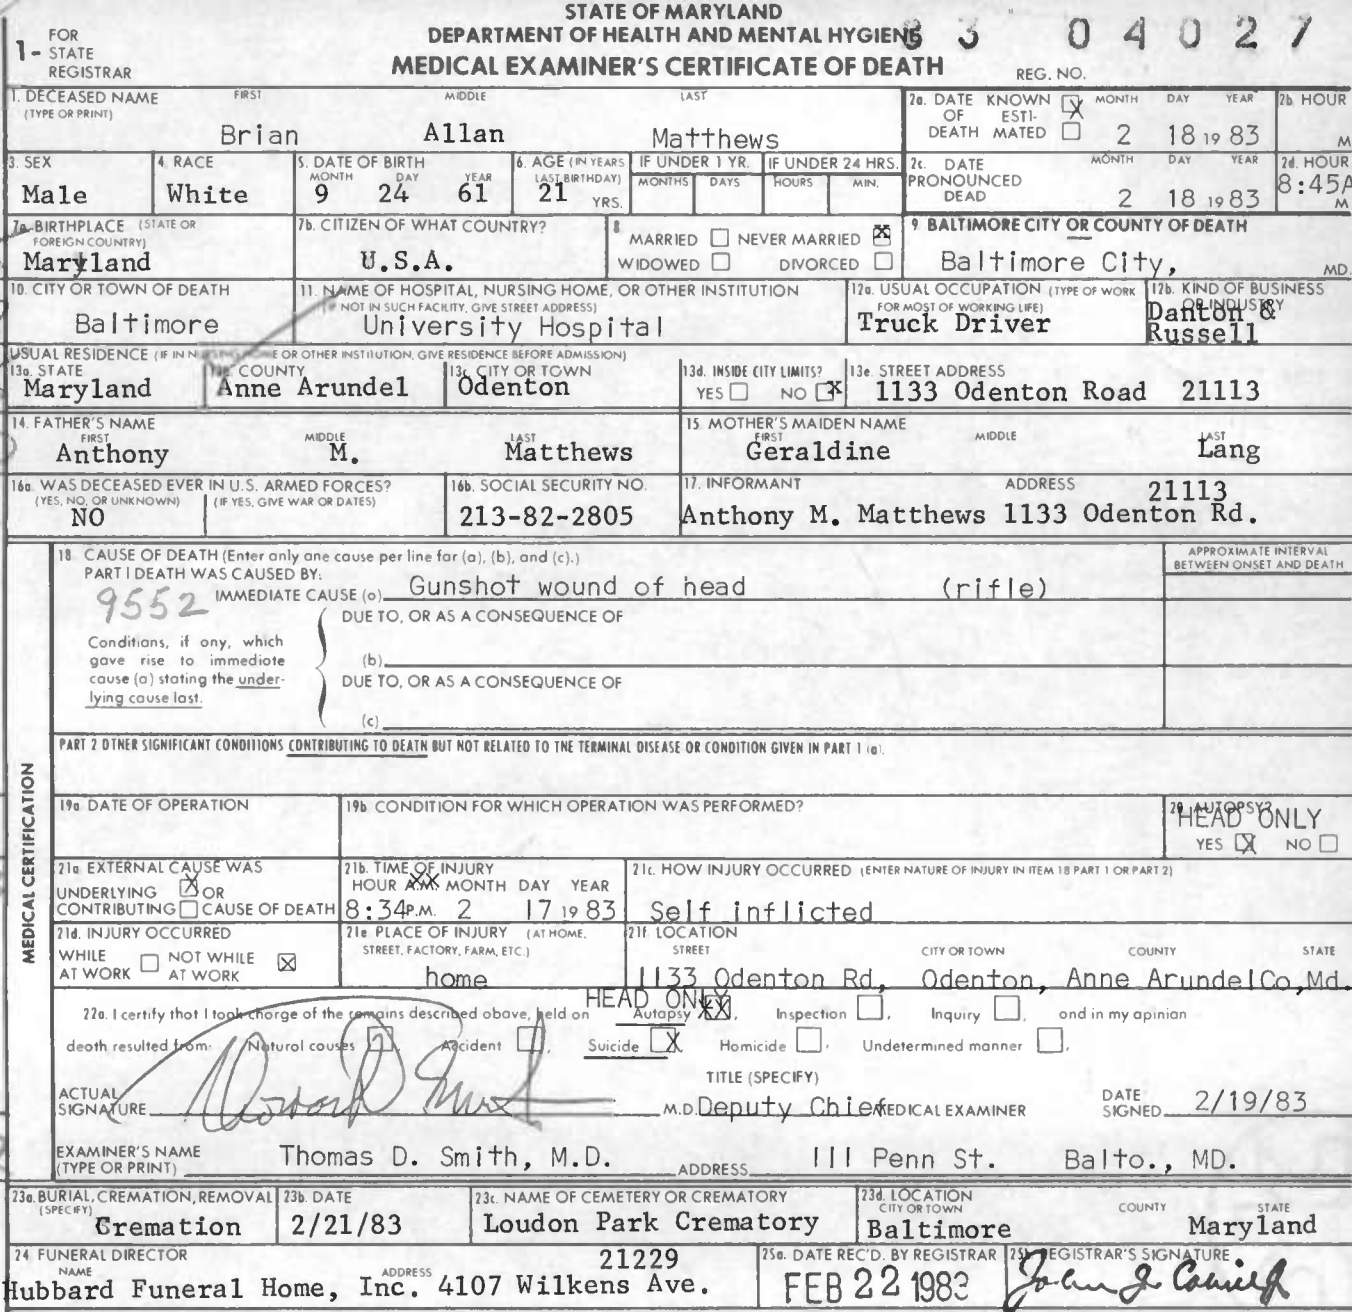 STATE OF MARYLAND
DEPARTMENT OF HEALTH AND MENTAL HYGIENE
MEDICAL EXAMINER'S CERTIFICATE OF DEATH
1- FOR STATE REGISTRAR
REG. NO. 83 04027
1. DECEASED NAME (TYPE OR PRINT) FIRST MIDDLE LAST
Brian Allan Matthews
2a. DATE OF DEATH KNOWN X ESTIMATED MONTH DAY YEAR
2 18 19 83
2b HOUR M
3. SEX
Male
4. RACE
White
5. DATE OF BIRTH MONTH DAY YEAR
9 24 61
6. AGE (IN YEARS LAST BIRTHDAY)
21 YRS.
IF UNDER 1 YR. MONTHS DAYS
IF UNDER 24 HRS. HOURS MIN.
2c. DATE PRONOUNCED DEAD MONTH DAY YEAR
2 18 19 83
2d. HOUR
8:45A M
7a. BIRTHPLACE (STATE OR FOREIGN COUNTRY)
Maryland
7b. CITIZEN OF WHAT COUNTRY?
U.S.A.
8 MARRIED NEVER MARRIED X
WIDOWED DIVORCED
9 BALTIMORE CITY OR COUNTY OF DEATH
Baltimore City, MD.
10. CITY OR TOWN OF DEATH
Baltimore
11. NAME OF HOSPITAL, NURSING HOME, OR OTHER INSTITUTION
(IF NOT IN SUCH FACILITY, GIVE STREET ADDRESS)
University Hospital
12a. USUAL OCCUPATION (TYPE OF WORK FOR MOST OF WORKING LIFE)
Truck Driver
12b. KIND OF BUSINESS OR INDUSTRY
Danton &
Russell
USUAL RESIDENCE (IF IN NURSING HOME OR OTHER INSTITUTION, GIVE RESIDENCE BEFORE ADMISSION)
13a. STATE
Maryland
13b. COUNTY
Anne Arundel
13c. CITY OR TOWN
Odenton
13d. INSIDE CITY LIMITS?
YES NO X
13e. STREET ADDRESS
1133 Odenton Road 21113
14. FATHER'S NAME FIRST MIDDLE LAST
Anthony M. Matthews
15. MOTHER'S MAIDEN NAME FIRST MIDDLE LAST
Geraldine Lang
16a. WAS DECEASED EVER IN U.S. ARMED FORCES?
(YES, NO, OR UNKNOWN) (IF YES, GIVE WAR OR DATES)
NO
16b. SOCIAL SECURITY NO.
213-82-2805
17. INFORMANT ADDRESS
21113
Anthony M. Matthews 1133 Odenton Rd.
MEDICAL CERTIFICATION
18 CAUSE OF DEATH (Enter only one cause per line for (a), (b), and (c).)
APPROXIMATE INTERVAL BETWEEN ONSET AND DEATH
PART I DEATH WAS CAUSED BY:
9552 IMMEDIATE CAUSE (a) Gunshot wound of head (rifle)
DUE TO, OR AS A CONSEQUENCE OF
Conditions, if any, which
gave rise to immediate
cause (a) stating the under-
lying cause last.
(b)
DUE TO, OR AS A CONSEQUENCE OF
(c)
PART 2 OTHER SIGNIFICANT CONDITIONS CONTRIBUTING TO DEATH BUT NOT RELATED TO THE TERMINAL DISEASE OR CONDITION GIVEN IN PART 1 (a).
19a DATE OF OPERATION
19b CONDITION FOR WHICH OPERATION WAS PERFORMED?
20 AUTOPSY?
HEAD ONLY
YES X NO
21a EXTERNAL CAUSE WAS
UNDERLYING X OR
CONTRIBUTING CAUSE OF DEATH
21b. TIME OF INJURY
HOUR A.M. MONTH DAY YEAR
8:34 P.M. 2 17 19 83
21c. HOW INJURY OCCURRED (ENTER NATURE OF INJURY IN ITEM 18 PART 1 OR PART 2)
Self inflicted
21d. INJURY OCCURRED
WHILE AT WORK NOT WHILE AT WORK X
21e PLACE OF INJURY (AT HOME, STREET, FACTORY, FARM, ETC.)
home
21f. LOCATION STREET CITY OR TOWN COUNTY STATE
1133 Odenton Rd, Odenton, Anne ArundelCo,Md.
HEAD ONLY
22a. I certify that I took charge of the remains described above, held on Autopsy XX, Inspection, Inquiry, and in my opinion
death resulted from: Natural causes, Accident, Suicide X, Homicide, Undetermined manner.
TITLE (SPECIFY)
ACTUAL SIGNATURE M.D. Deputy Chief MEDICAL EXAMINER DATE SIGNED 2/19/83
EXAMINER'S NAME (TYPE OR PRINT) Thomas D. Smith, M.D. ADDRESS 111 Penn St. Balto., MD.
23a. BURIAL, CREMATION, REMOVAL (SPECIFY)
Cremation
23b. DATE
2/21/83
23c. NAME OF CEMETERY OR CREMATORY
Loudon Park Crematory
23d. LOCATION CITY OR TOWN COUNTY STATE
Baltimore Maryland
24 FUNERAL DIRECTOR NAME ADDRESS
21229
Hubbard Funeral Home, Inc. 4107 Wilkens Ave.
25a. DATE REC'D. BY REGISTRAR
FEB 22 1983
25b. REGISTRAR'S SIGNATURE